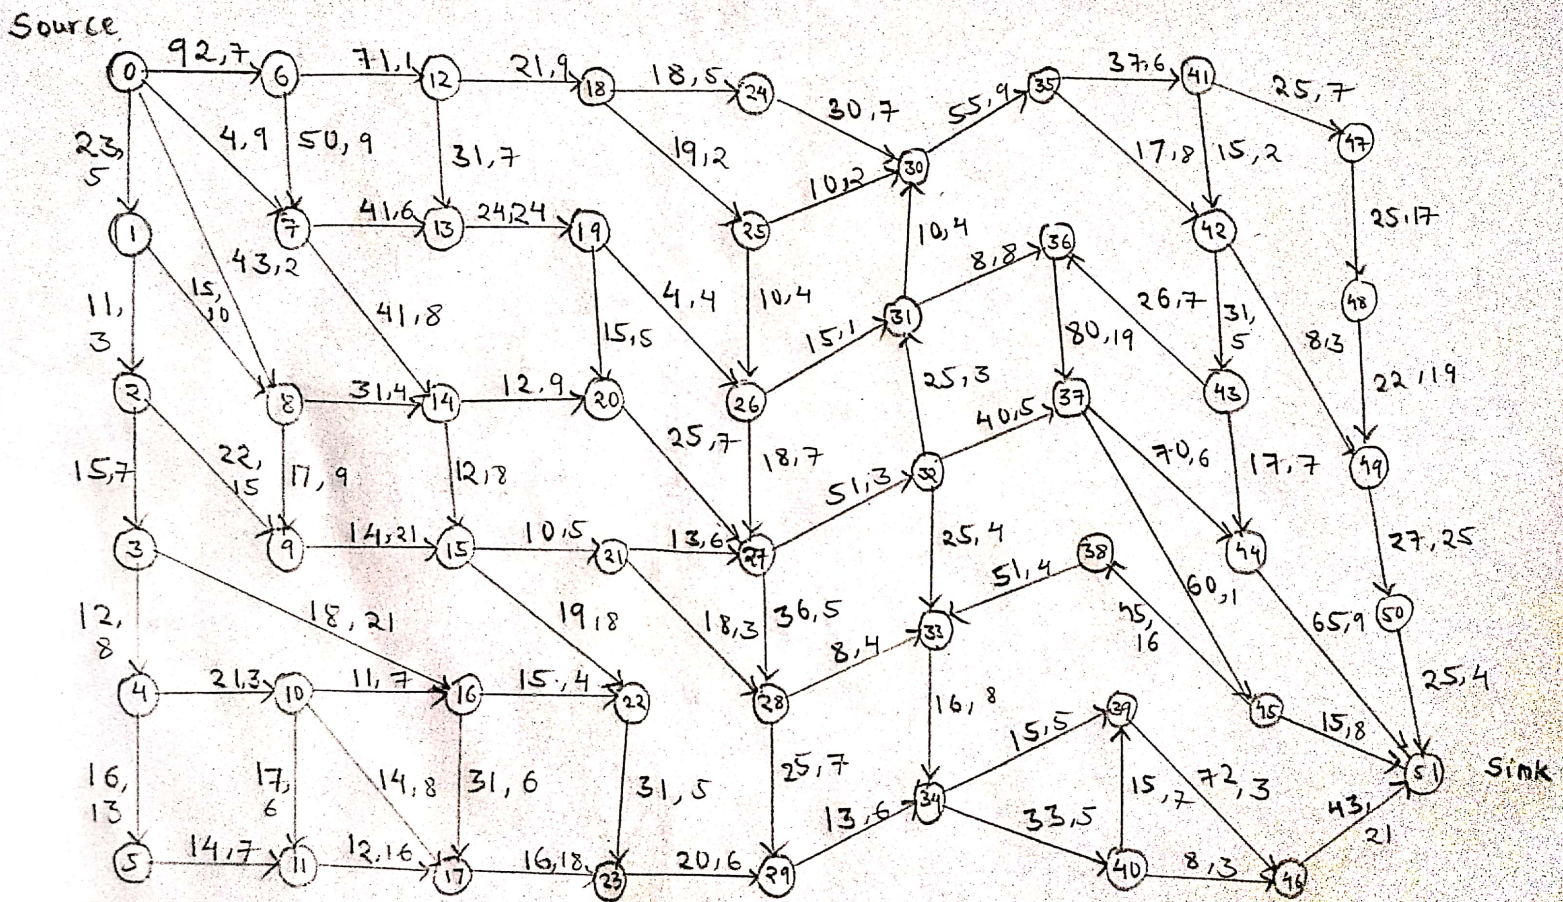 Source
92,7
71,1
21,9
18,5
30,7
55,9
37,6
25,7
0
6
12
18
24
35
41
47
23,
5
4,9
50,9
31,7
19,2
10,2
30
17,8
15,2
25,17
1
7
41,6
13
24,24
19
25
10,4
36
42
43,2
15,
10
11,
3
41,8
4,4
10,4
8,8
26,7
31,
5
8,3
48
15,5
15,1
31
80,19
22,19
2
8
31,4
14
12,9
20
26
25,3
40,5
37
43
15,7
22,
15
17,9
12,8
25,7
18,7
51,3
32
70,6
17,7
49
3
9
14,21
15
10,5
21
13,6
27
25,4
51,4
38
44
27,25
12,
8
18,21
19,8
18,3
36,5
8,4
33
45,
16
60,1
65,9
50
4
21,3
10
11,7
16
15,4
22
28
16,8
39
45
15,8
25,4
16,
13
17,
6
14,8
31,6
31,5
25,7
15,5
72,3
51
Sink
5
14,7
11
12,16
17
16,18
23
20,6
29
13,6
34
33,5
15,7
40
8,3
46
43,
21